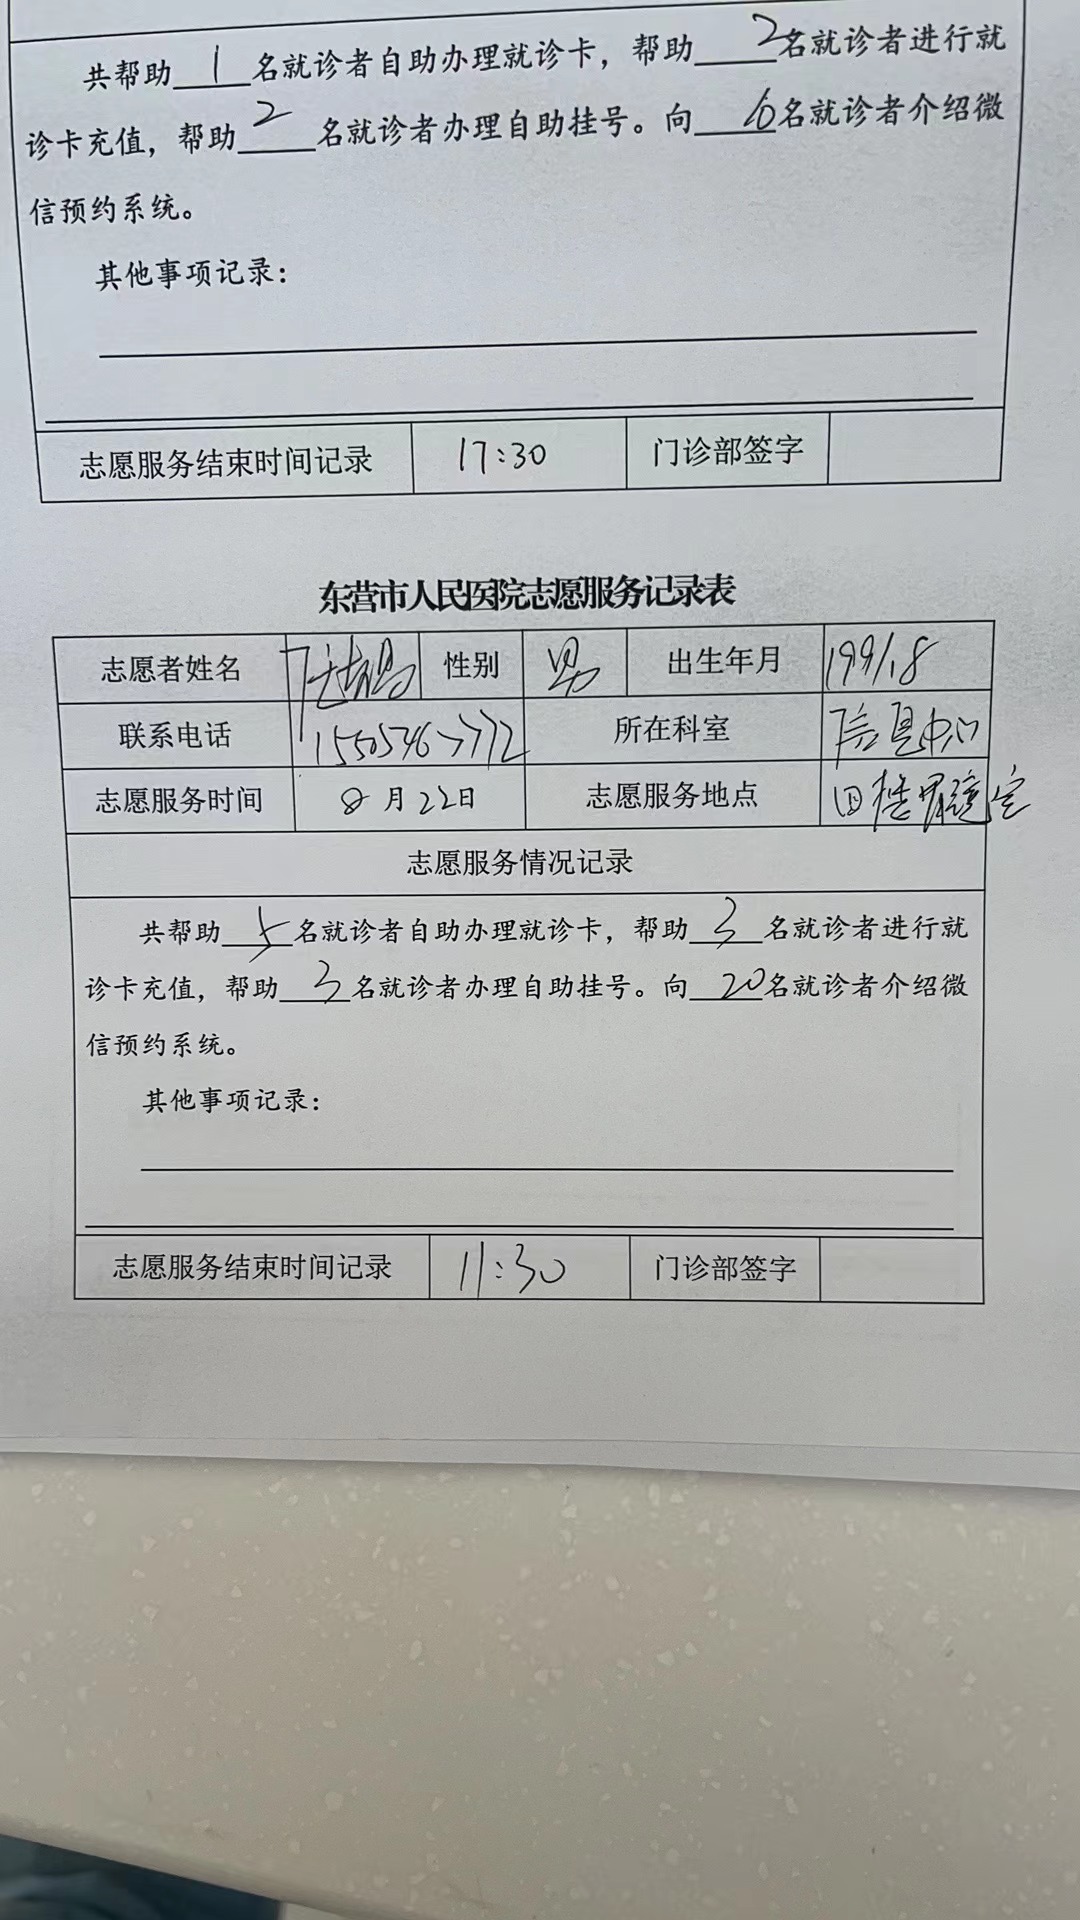 共帮助 1 名就诊者自助办理就诊卡，帮助 2 名就诊者进行就
诊卡充值，帮助 2 名就诊者办理自助挂号。向 6 名就诊者介绍微
信预约系统。
其他事项记录：
志愿服务结束时间记录 17:30 门诊部签字
东营市人民医院志愿服务记录表
志愿者姓名 性别 男 出生年月 1991.8
联系电话 所在科室 信息中心
志愿服务时间 8月22日 志愿服务地点
志愿服务情况记录
共帮助 5 名就诊者自助办理就诊卡，帮助 3 名就诊者进行就
诊卡充值，帮助 3 名就诊者办理自助挂号。向 20 名就诊者介绍微
信预约系统。
其他事项记录：
志愿服务结束时间记录 11:30 门诊部签字